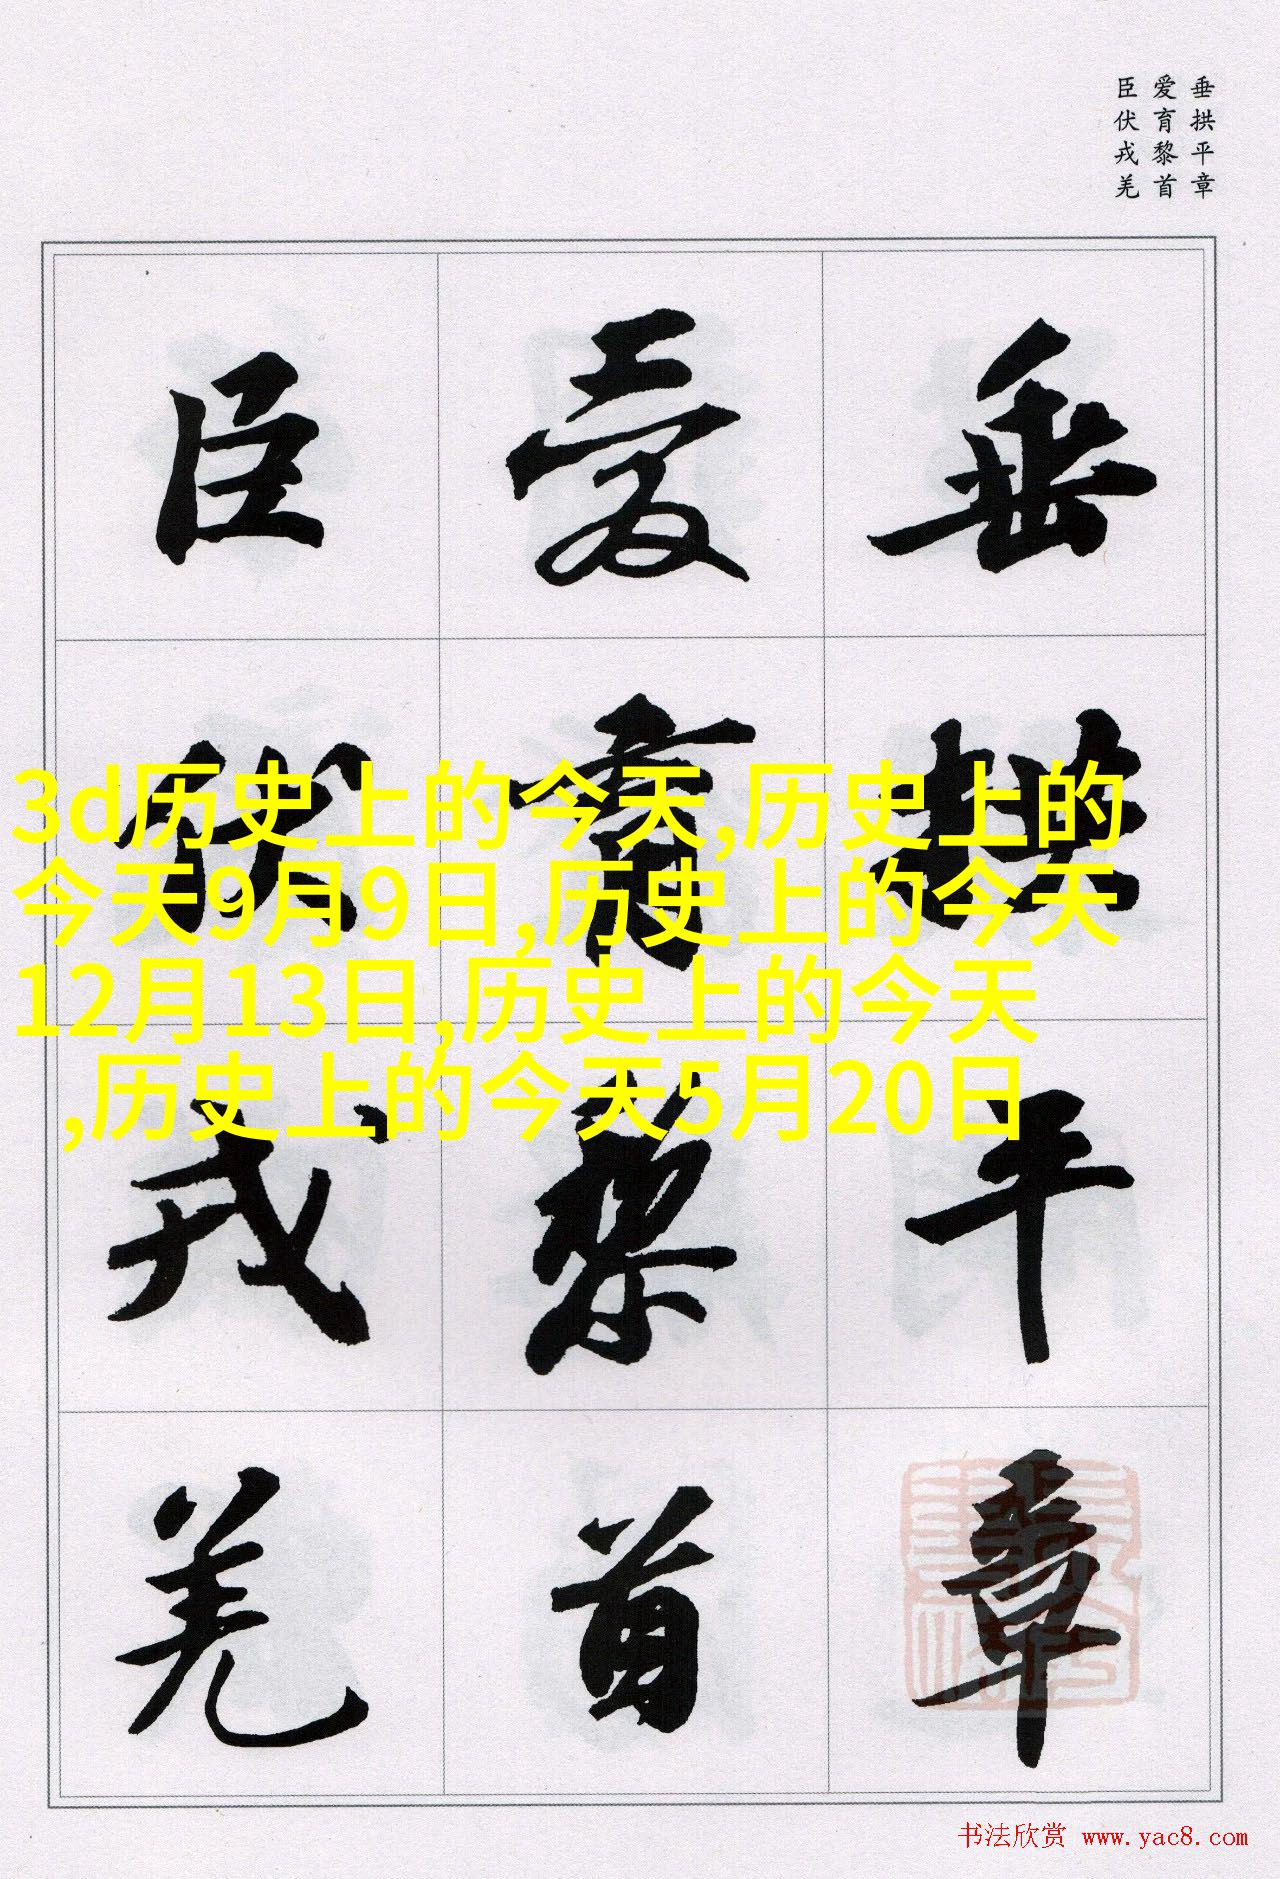 垂拱平章
爱育黎首
臣伏戎羌
垂拱平章
爱育黎首
臣伏戎羌
3d历史上的今天,历史上的
今天9月9日,历史上的今天
12月13日,历史上的今天
,历史上的今天5月20日
书法欣赏 www.yac8.com